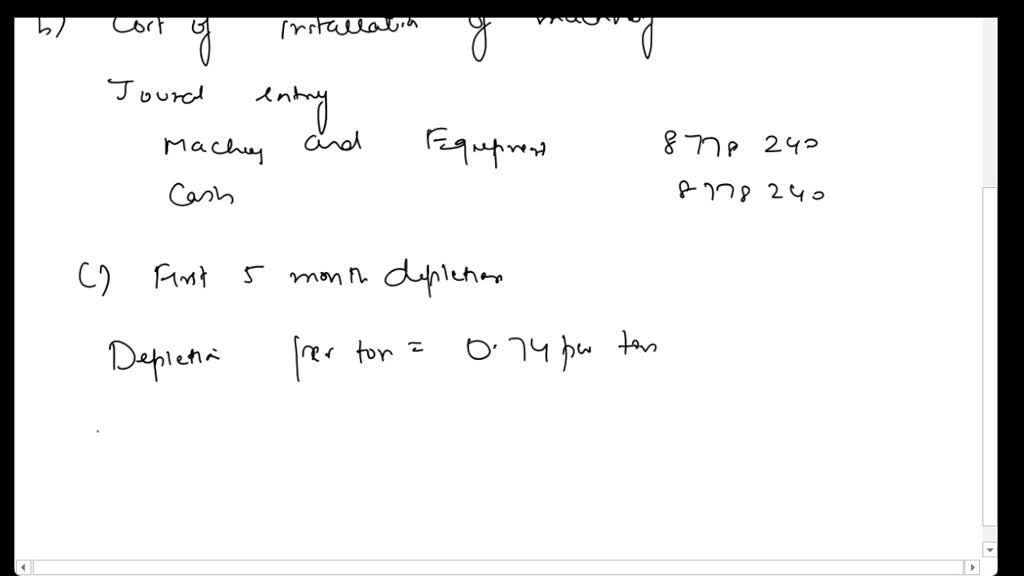 b) Cost of installation of machinery
Joural entry
Machey and Equipment 8778 240
Cash 8778 240
C) First 5 month depletion
Depletion per ton = 0.74 per ton